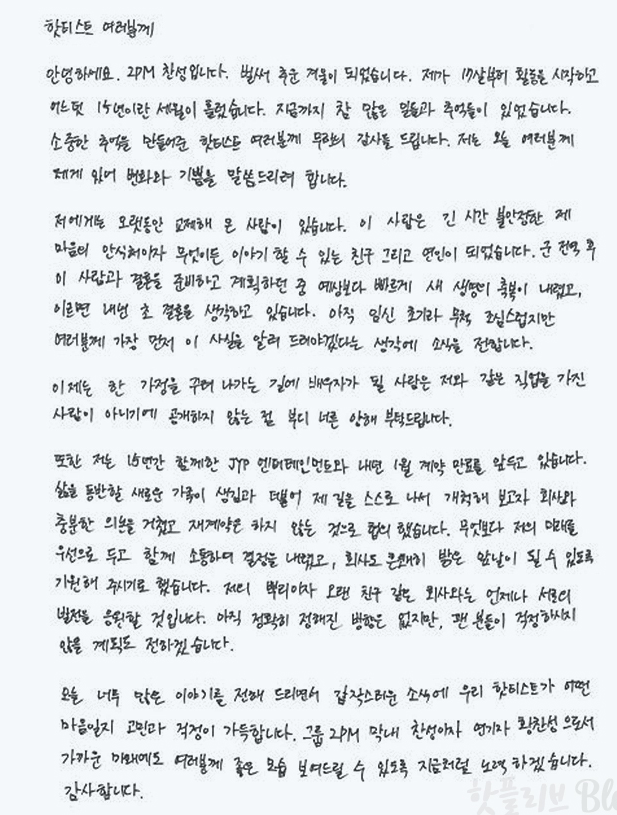 핫티스트 여러분께
안녕하세요. 2PM 찬성입니다. 벌써 추운 겨울이 되었습니다. 제가 17살부터 활동을 시작하고
어느덧 15년이란 세월이 흘렀습니다. 지금까지 참 많은 일들과 추억들이 있었습니다.
소중한 추억을 만들어준 핫티스트 여러분께 무한의 감사를 드립니다. 저는 오늘 여러분께
제게 있어 변화와 기쁨을 말씀드리려 합니다.
저에게는 오랫동안 교제해 온 사람이 있습니다. 이 사람은 긴 시간 불안정한 제
마음의 안식처이자 무엇이든 이야기 할 수 있는 친구 그리고 연인이 되었습니다. 군 전역 후
이 사람과 결혼을 준비하고 계획하던 중 예상보다 빠르게 새 생명의 축복이 내렸고,
이르면 내년 초 결혼을 생각하고 있습니다. 아직 임신 초기라 무척 조심스럽지만
여러분께 가장 먼저 이 사실을 알려 드려야겠다는 생각에 소식을 전합니다.
이제는 한 가정을 꾸려 나가는 길에 배우자가 될 사람은 저와 같은 직업을 가진
사람이 아니기에 공개하지 않는 점 부디 너른 양해 부탁드립니다.
또한 저는 15년간 함께한 JYP 엔터테인먼트와 내년 1월 계약 만료를 앞두고 있습니다.
삶을 동반할 새로운 가족이 생김과 더불어 제 길을 스스로 나서 개척해 보고자 회사와
충분한 의논을 거쳤고 재계약은 하지 않는 것으로 합의 했습니다. 무엇보다 저의 미래를
우선으로 두고 함께 소통하며 결정을 내렸고, 회사도 흔쾌히 밝은 앞날이 될 수 있도록
기원해 주시기로 했습니다. 저의 뿌리이자 오랜 친구 같은 회사와는 언제나 서로의
발전을 응원할 것입니다. 아직 정확히 정해진 방향은 없지만, 팬 분들이 걱정하시지
않을 계획도 전하겠습니다.
오늘 너무 많은 이야기를 전해 드리면서 갑작스러운 소식에 우리 핫티스트가 어떤
마음일지 고민과 걱정이 가득합니다. 그룹 2PM 막내 찬성이자 연기자 황찬성으로서
가까운 미래에도 여러분께 좋은 모습 보여드릴 수 있도록 지금처럼 노력하겠습니다.
감사합니다.
핫플리브 Blo